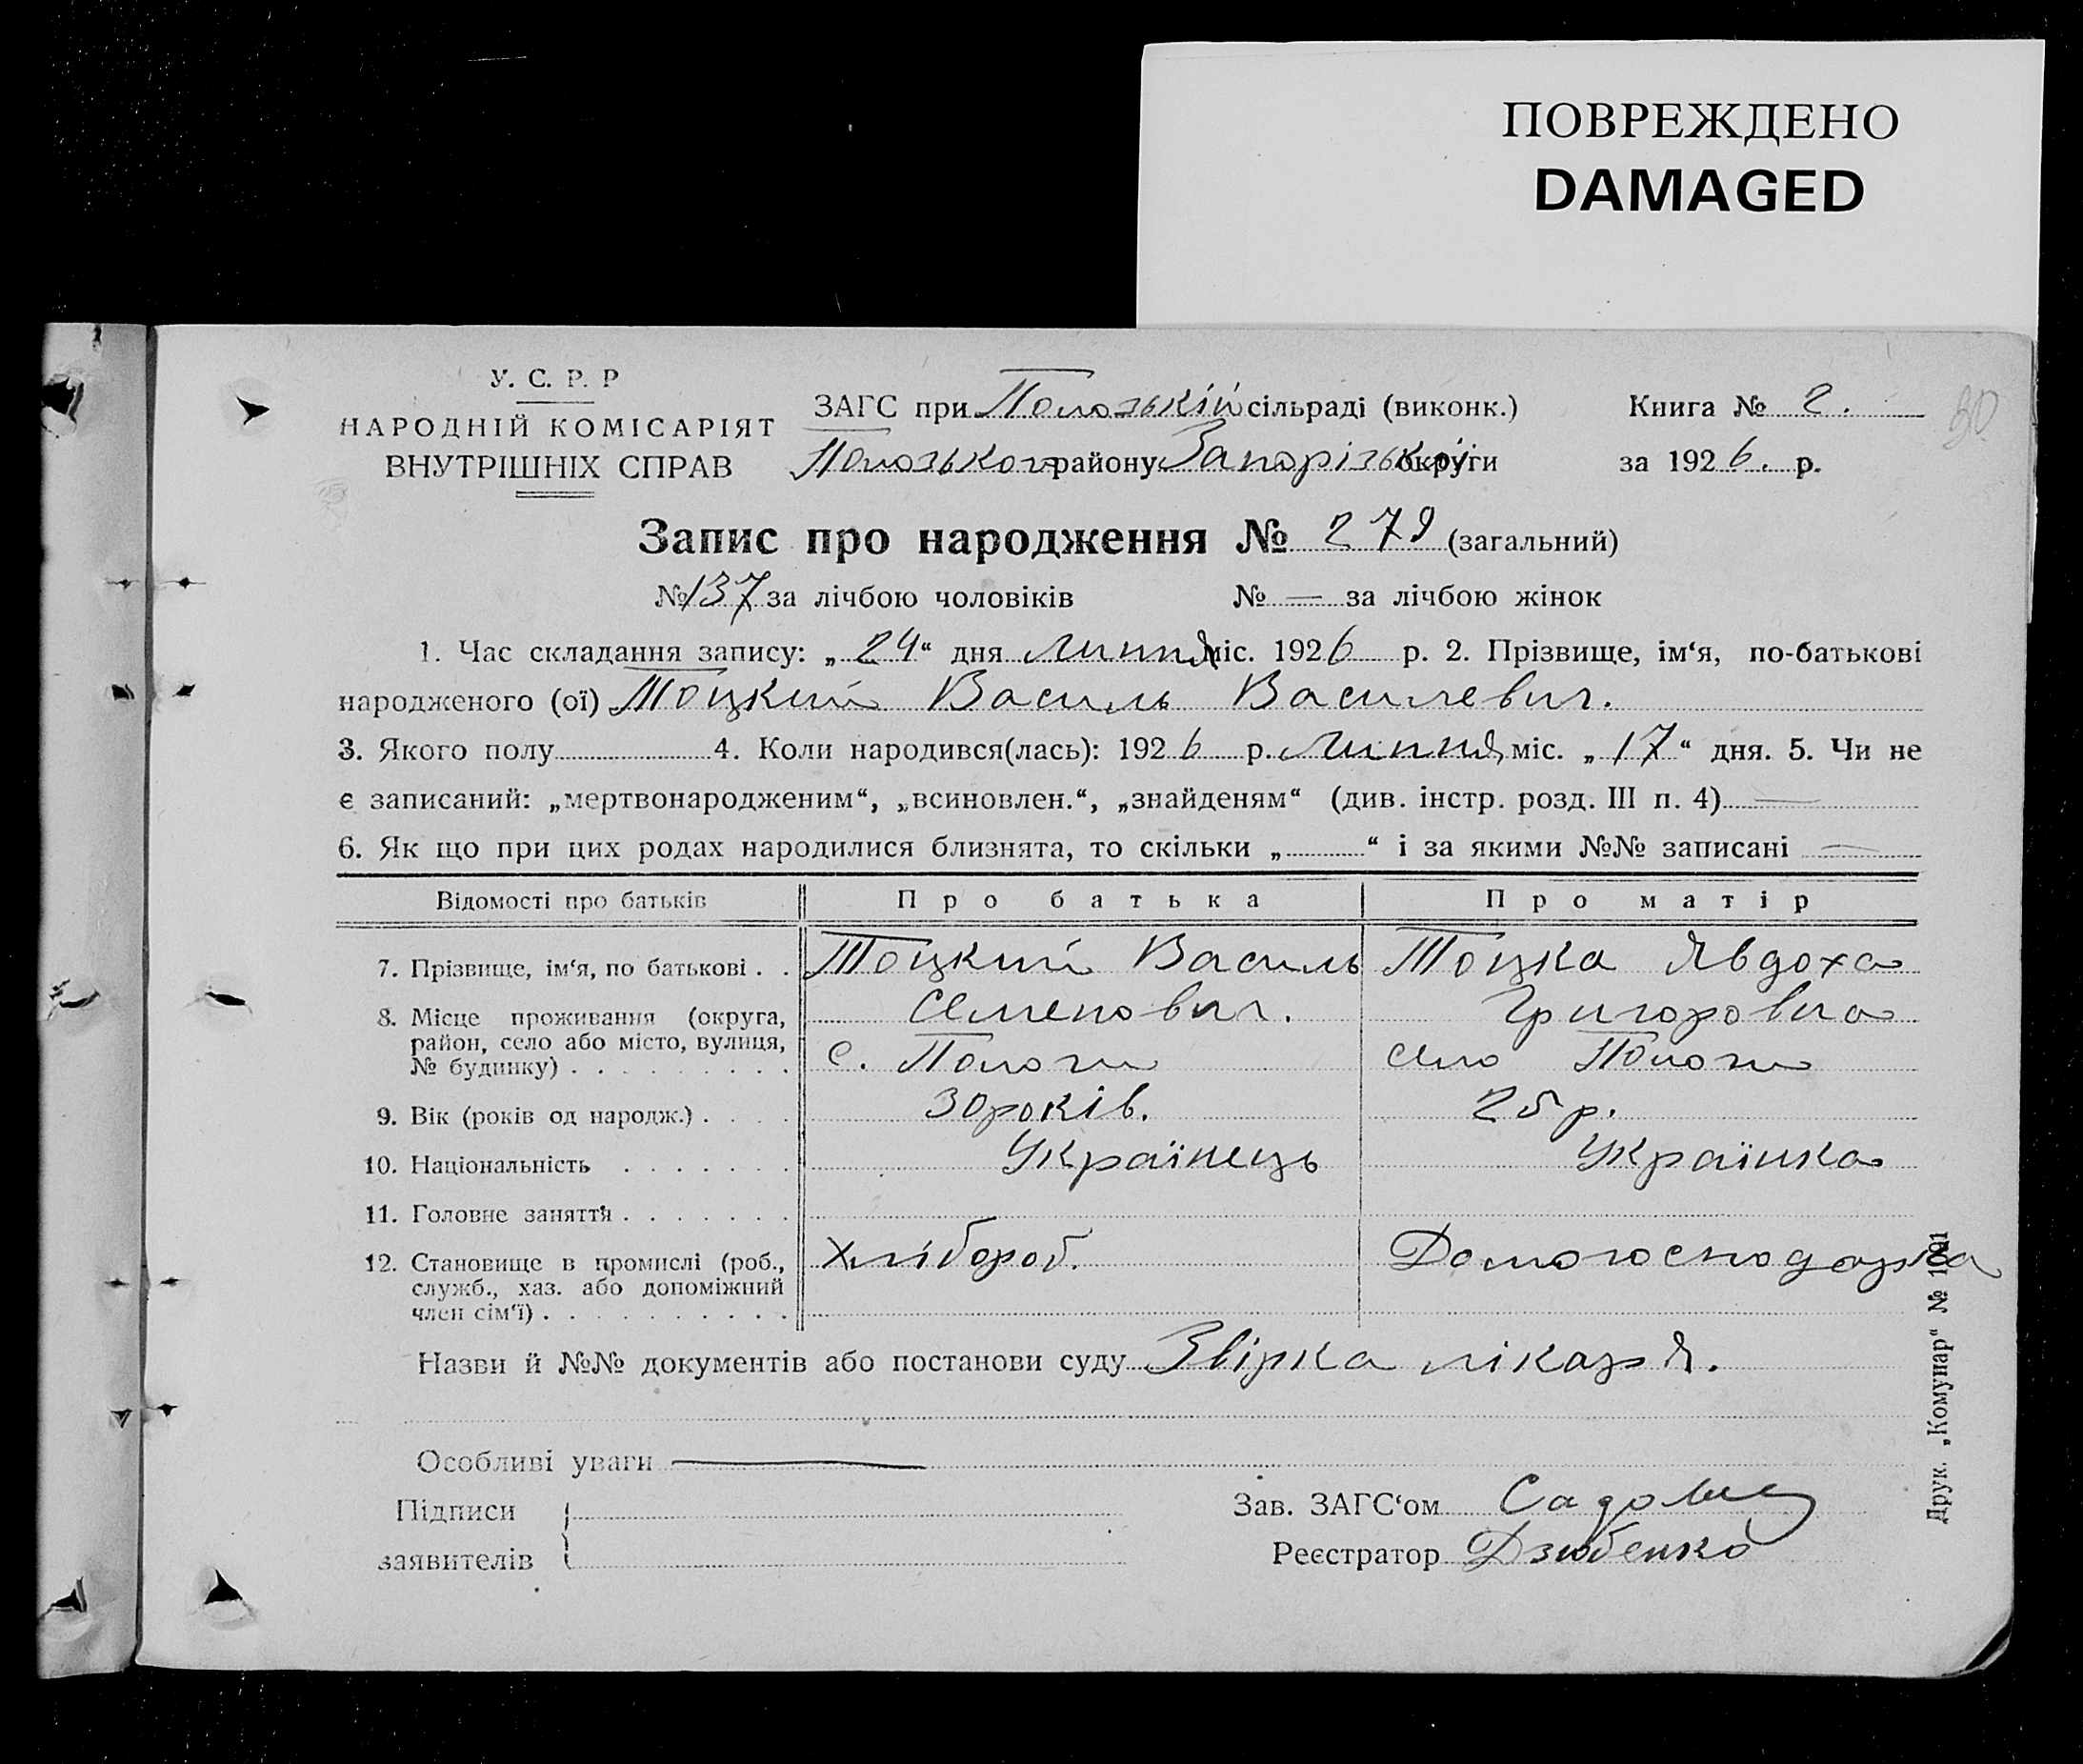 ПОВРЕЖДЕНО
DAMAGED
У. С. Р. Р
НАРОДНІЙ КОМІСАРІЯТ
ВНУТРІШНІХ СПРАВ
ЗАГС при Пологзькій сільраді (виконк.)
Пологзького району Запорізької округи
Книга № 2.
за 1926. р.
30
Запис про народження № 279 (загальний)
№ 137 за лічбою чоловіків № — за лічбою жінок
1. Час складання запису: „24“ дня Липня міс. 1926 р. 2. Прізвище, ім‘я, по-батькові
народженого (ої) Тоцкий Василь Василевич.
3. Якого полу 4. Коли народився(лась): 1926 р. Липня міс. „17“ дня. 5. Чи не
є записаний: „мертвонародженим“, „всиновлен.“, „знайденям“ (див. інстр. розд. III п. 4) —
6. Як що при цих родах народилися близнята, то скільки „ “ і за якими №№ записані —
Відомості про батьків Про батька Про матір
7. Прізвище, ім‘я, по батькові . . Тоцкий Василь Тоцка Явдоха
Семенович. Григоровна
8. Місце проживання (округа,
район, село або місто, вулиця,
№ будинку) с. Пологи село Пологи
9. Вік (років од народж.) 30 років. 25 р.
10. Національність Українець Українка
11. Головне заняття
12. Становище в промислі (роб.,
служб., хаз. або допоміжний
член сім‘ї) Хлібороб. Домогосподарка
Назви й №№ документів або постанови суду Звірка лікаря.
Особливі уваги —
Підписи
заявителів
Зав. ЗАГС‘ом
Реєстратор Дзюбенко
Друк. „Комунар“ № 1091